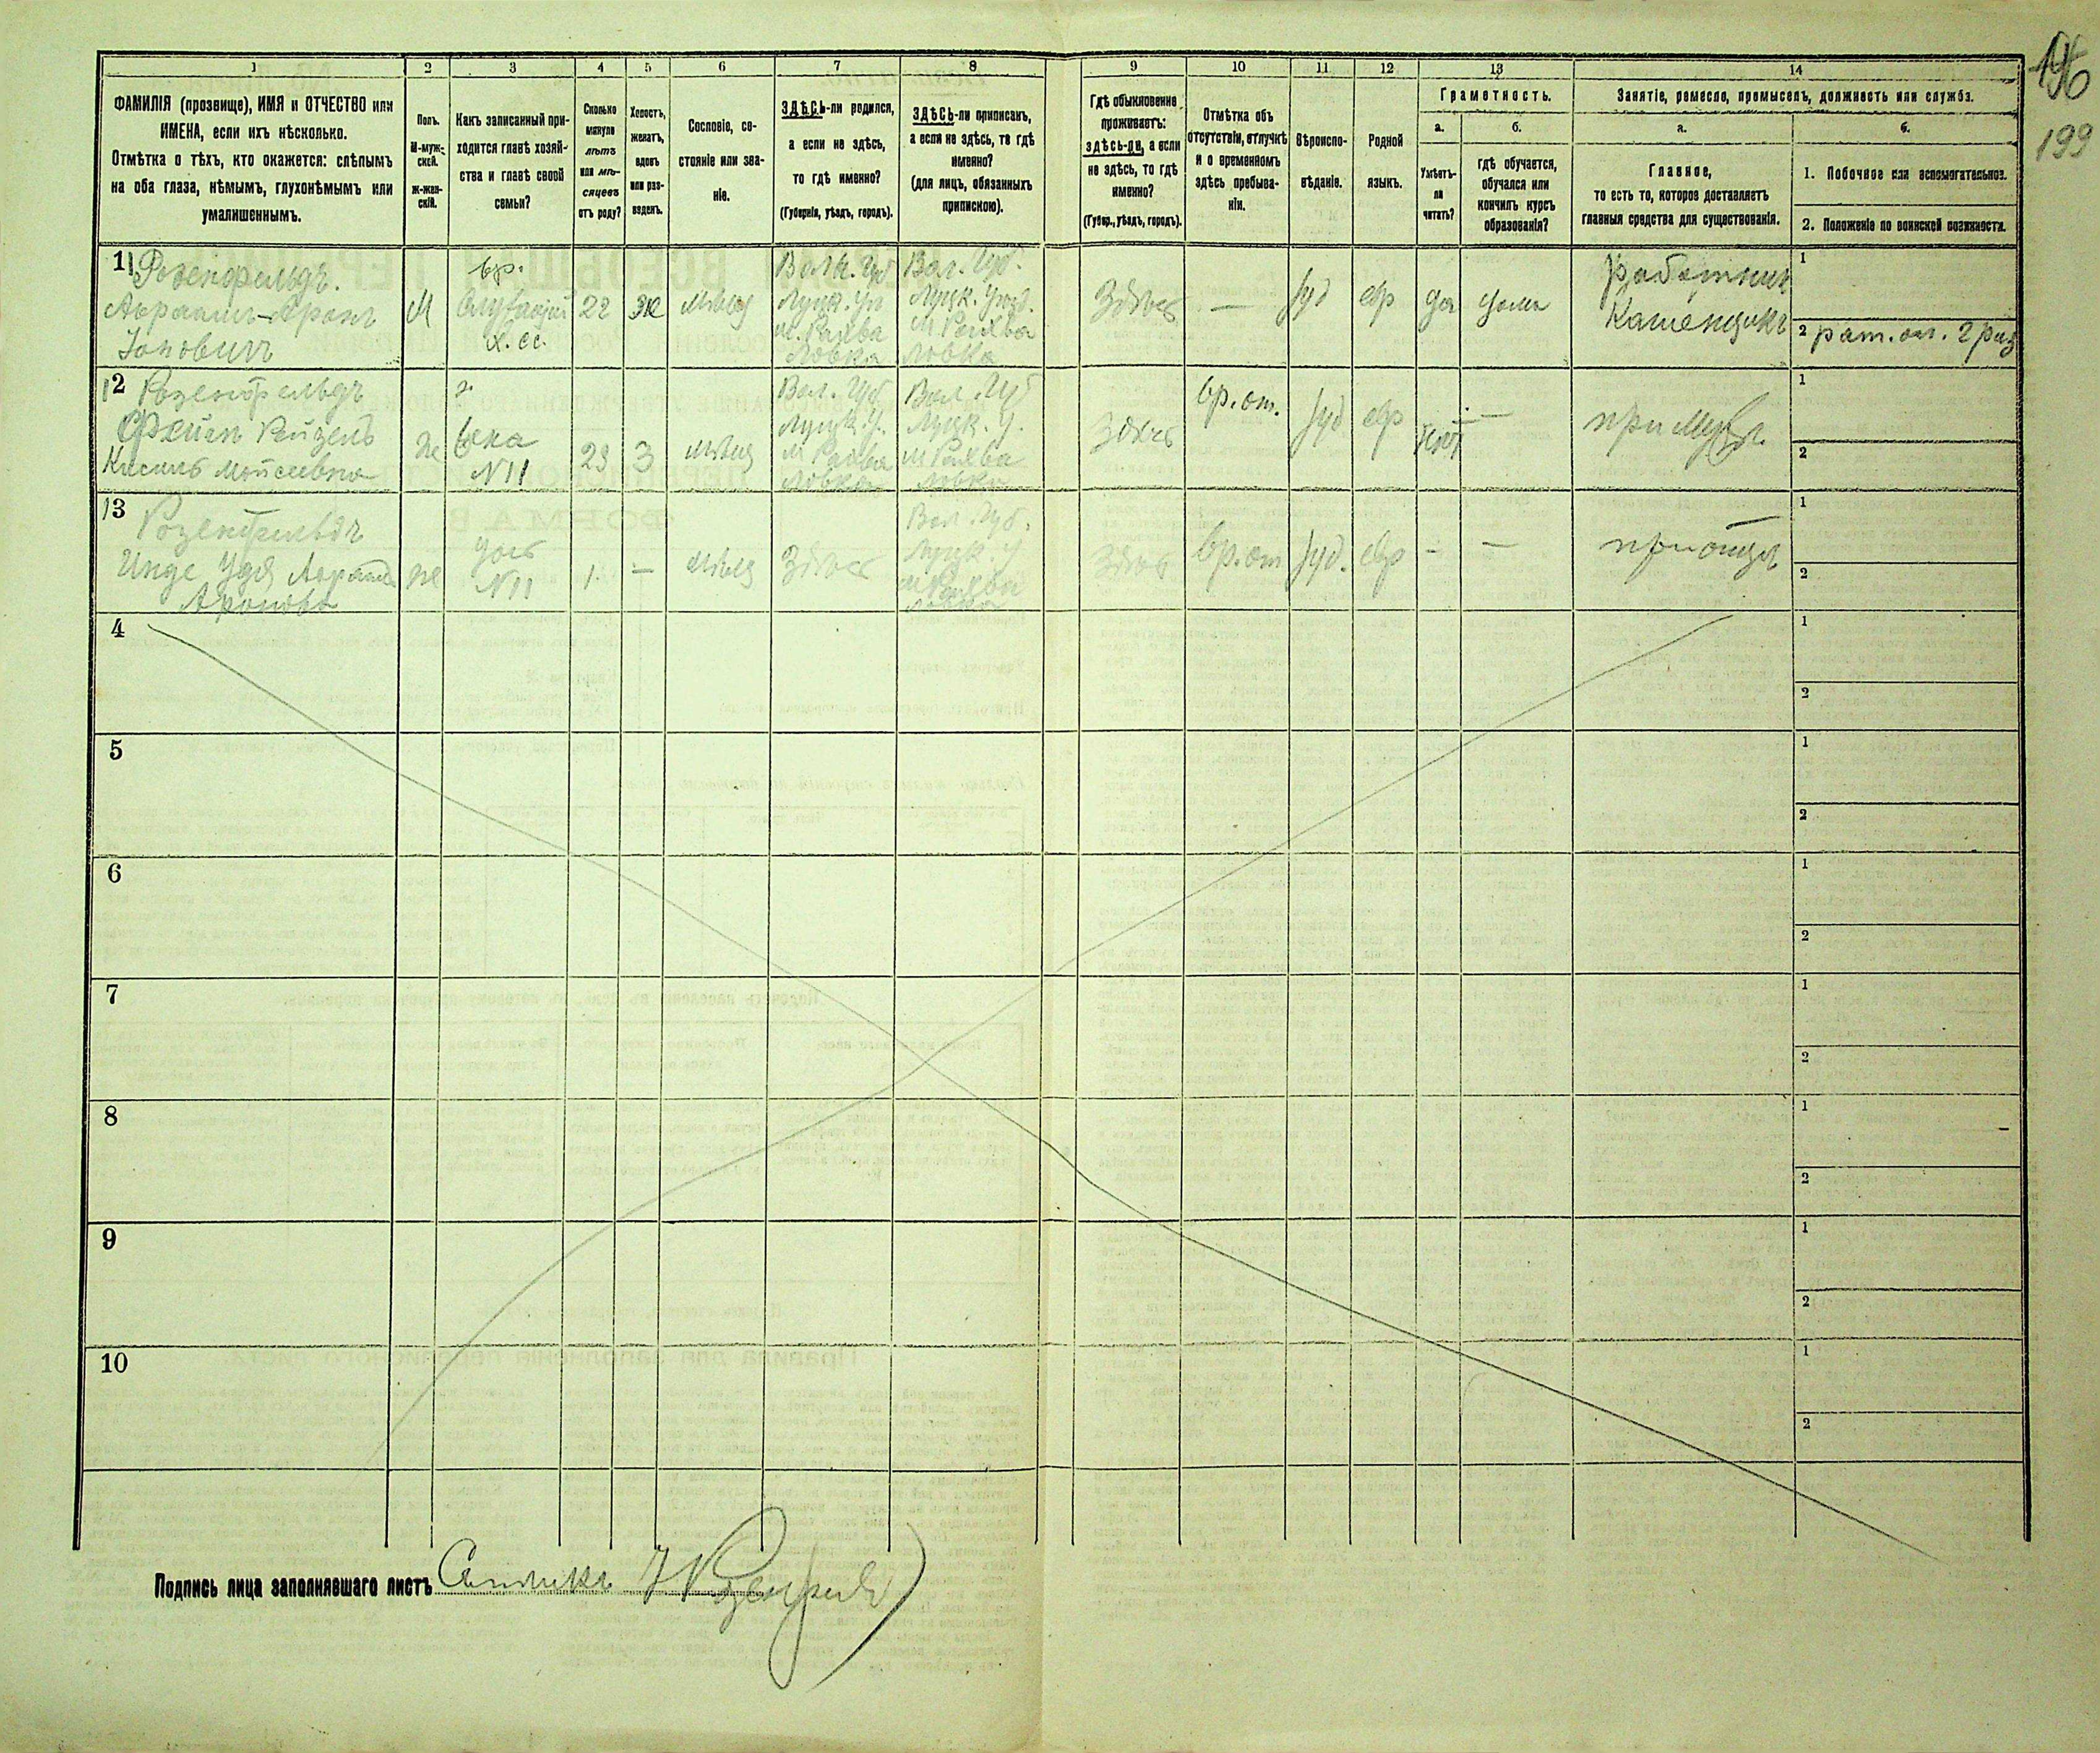 196
199
1 2 3 4 5 6 7 8 9 10 11 12 13 14
ФАМИЛІЯ (прозвище), ИМЯ и ОТЧЕСТВО или
ИМЕНА, если ихъ нѣсколько.
Отмѣтка о тѣхъ, кто окажется: слѣпымъ
на оба глаза, нѣмымъ, глухонѣмымъ или
умалишеннымъ.
Полъ.
М-муж-
ской.
ж-жен-
скій.
Какъ записанный при-
ходится главѣ хозяй-
ства и главѣ своей
семьи?
Сколько
минуло
лѣтъ
или мѣ-
сяцевъ
отъ роду?
Холостъ,
женатъ,
вдовъ
или раз-
веденъ.
Сословіе, со-
стояніе или зва-
ніе.
ЗДѢСЬ-ли родился,
а если не здѣсь,
то гдѣ именно?
(Губернія, уѣздъ, городъ).
ЗДѢСЬ-ли приписанъ,
а если не здѣсь, то гдѣ
именно?
(для лицъ, обязанныхъ
припискою).
Гдѣ обыкновенно
проживаетъ:
здѣсь-ли, а если
не здѣсь, то гдѣ
именно?
(Губер., уѣздъ, городъ).
Отмѣтка объ
отсутствіи, отлучкѣ
и о временномъ
здѣсь пребыва-
ніи.
Вѣроиспо-
вѣданіе.
Родной
языкъ.
Грамотность.
а.
Умѣетъ-
ли
читать?
б.
гдѣ обучается,
обучался или
кончилъ курсъ
образованія?
Занятіе, ремесло, промыселъ, должность или служба.
а.
Главное,
то есть то, которое доставляетъ
главныя средства для существованія.
б.
1. Побочное или вспомогательное.
2. Положеніе по воинской повинности.
11 Розенфельдъ.
Авраамъ-Аронъ
М
вр.
х. се.
22
Вол. Губ.
Луцк. Уѣзд.
М Рахва
ловка
Здѣсь
—
Іуд
евр
да
дома
работник
Каменщикъ
1
2
12 Розенфельдъ
Рейзель
Мойсеевна
ж
N 11
23
З
Вол. Губ
Луцк. У.
М Рахва
ловка
Вол. Губ
Луцк. У.
М Рахва
ловка
Здѣсь
вр. от.
Іуд
евр
нѣт
—
при
1
2
13 Розенфельдъ
Аронова
ж
дочь
N 11
1
—
Здѣсь
Вол. Губ.
Луцк. У
м Рахва
ловка
Здѣсь
вр. от
Іуд.
евр
-
—
при отцѣ
1
2
4
1
2
5
1
2
6
1
2
7
1
2
8
1
2
9
1
2
10
1
2
Подпись лица заполнявшаго листъ